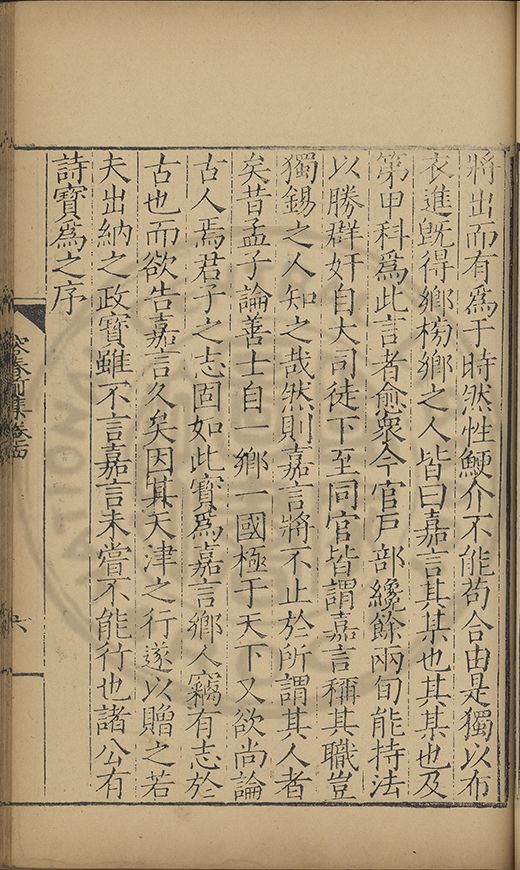 將出而有為于時然性鯁介不能苟合由是獨以布
衣進旣得鄉榜鄉之人皆曰嘉言其某也其某也及
第甲科為此言者愈衆今官戶部纔餘兩旬能持法
以勝群奸自大司徒下至同官皆謂嘉言稱其職豈
獨錫之人知之哉然則嘉言將不止於所謂其人者
矣昔孟子論善士自一鄉一國極于天下又欲尚論
古人焉君子之志固如此寶為嘉言鄉人竊有志於
古也而欲告嘉言久矣因其天津之行遂以贈之若
夫出納之政寶雖不言嘉言未嘗不能行也諸公有
詩寶為之序
容春前集卷十四
六